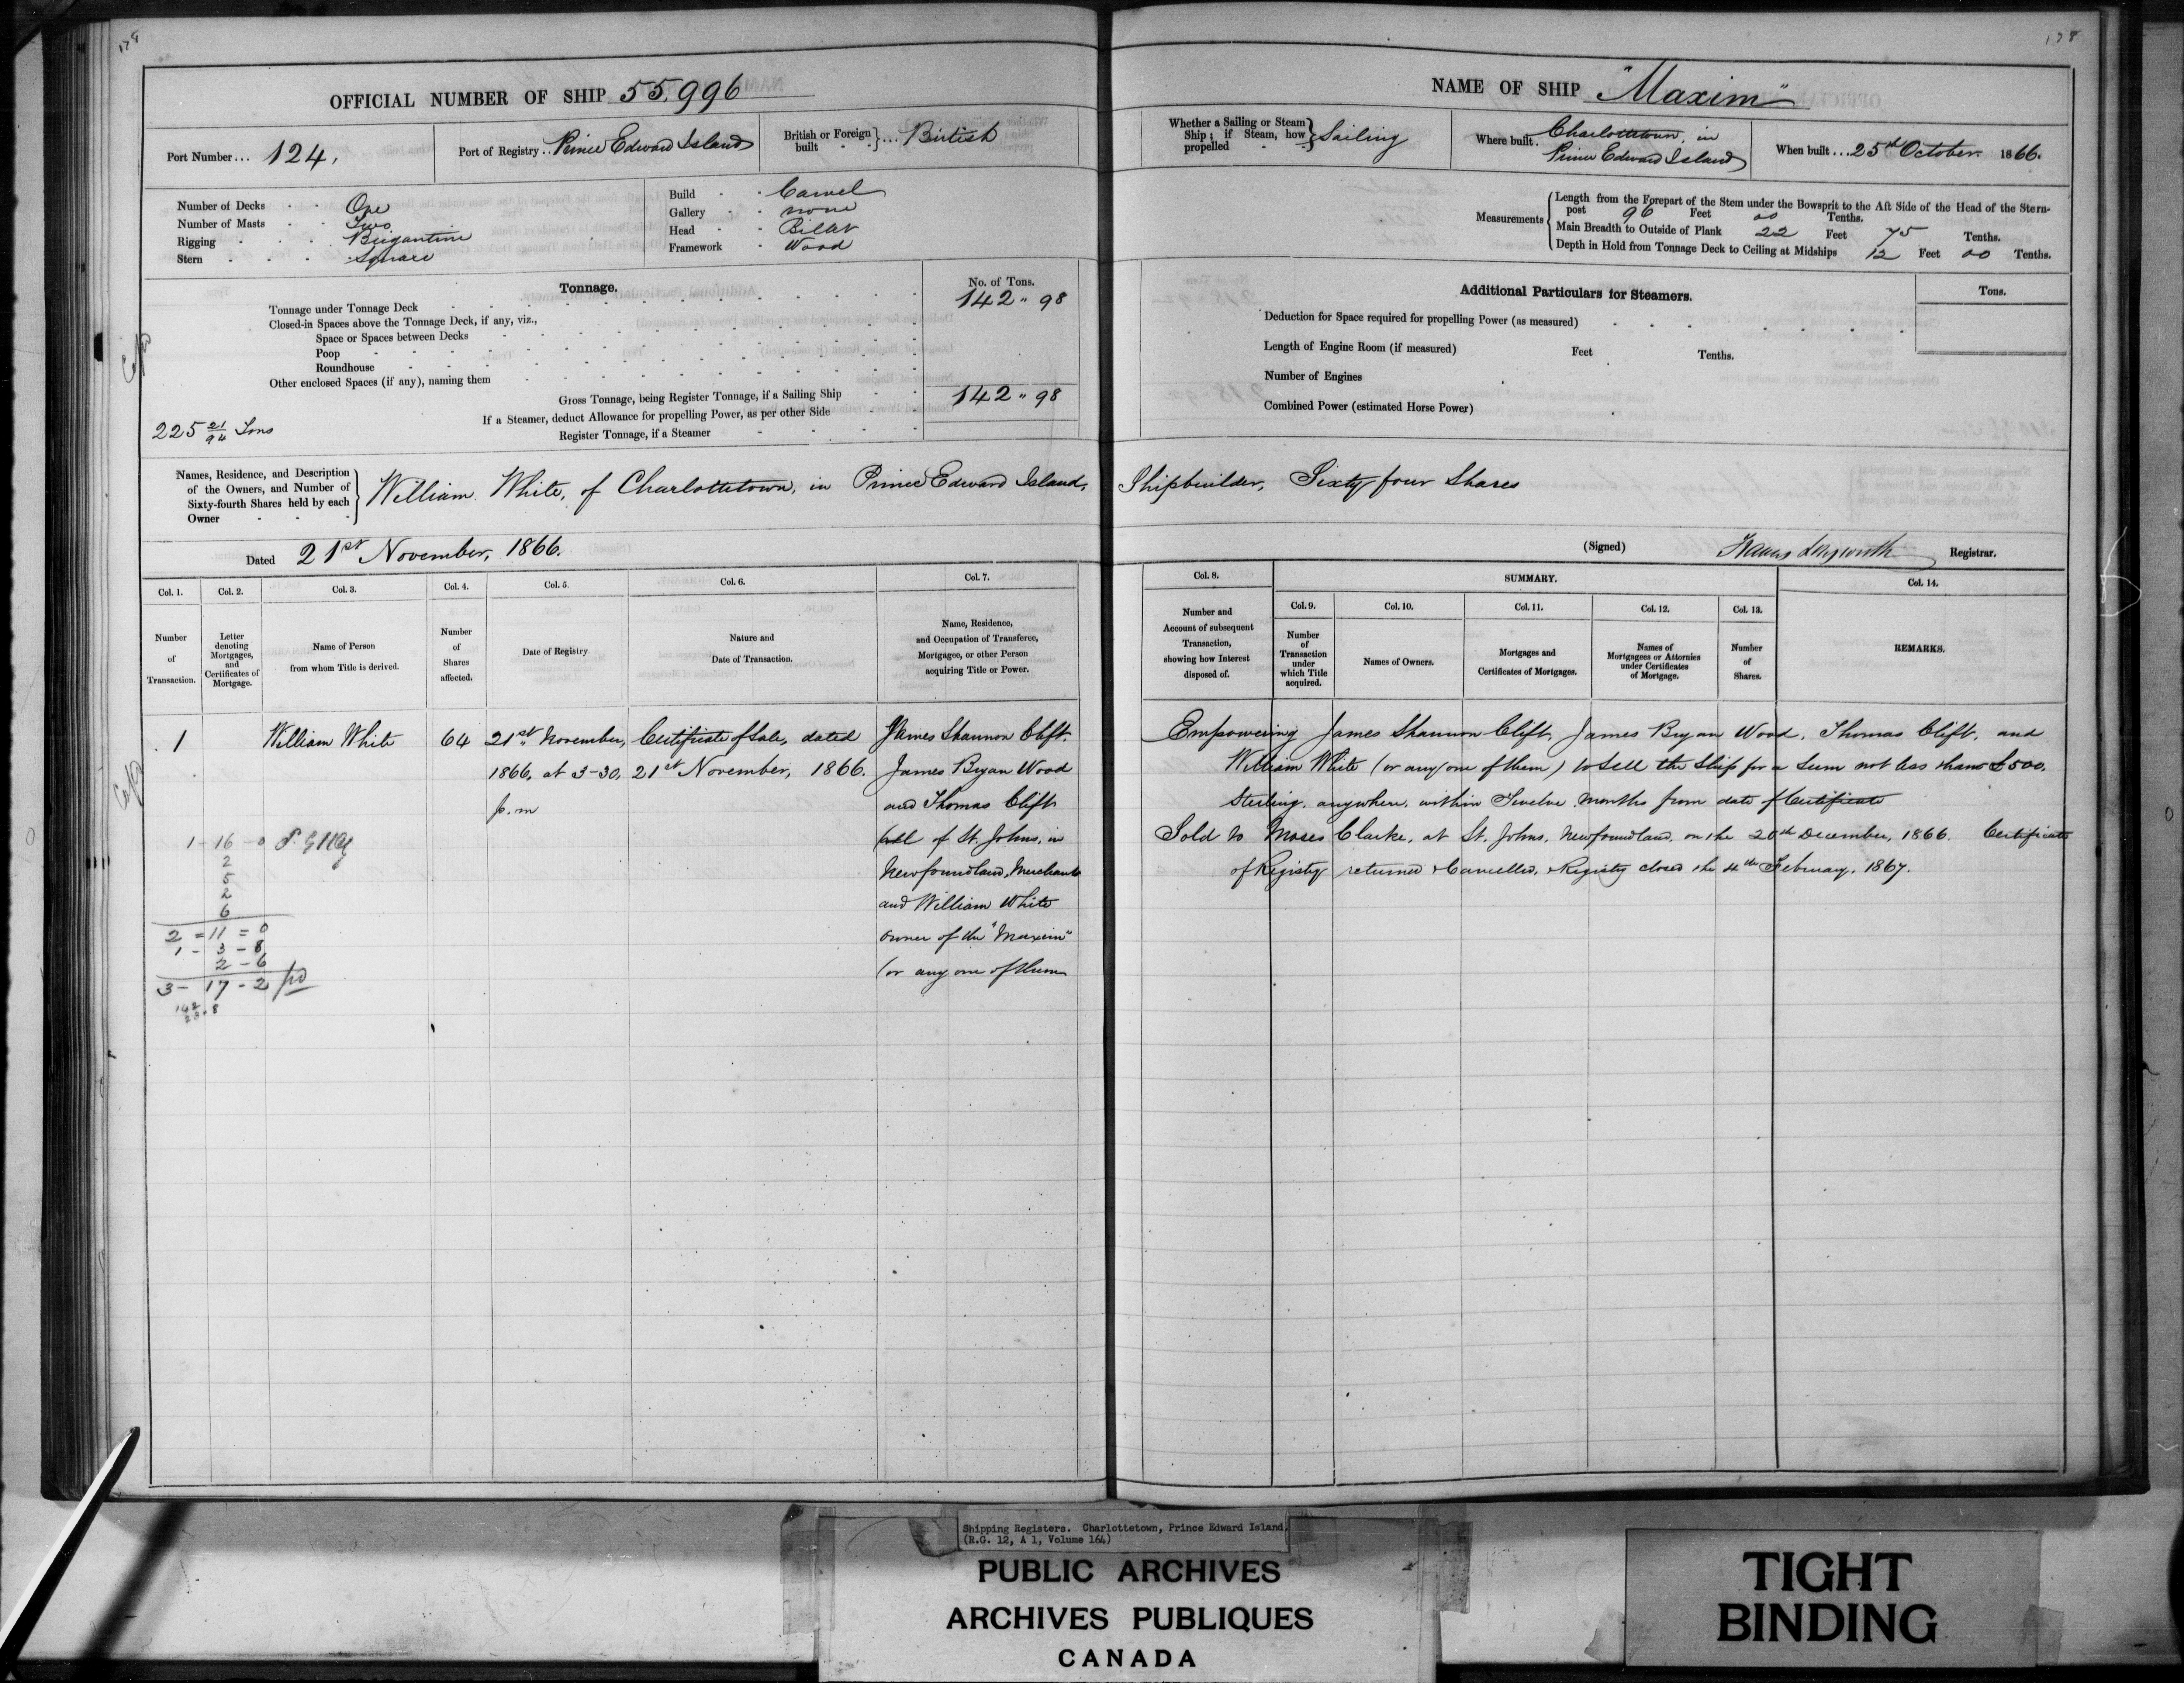 178
178
OFFICIAL NUMBER OF SHIP 55,996
Port Number... 124,
Port of Registry.. Prince Edward Island
British or Foreign built }... British
Number of Decks - - One
Number of Masts - - Two
Rigging - - - Brigantine
Stern - - - Square
Build - - Carvel
Gallery - - none
Head - - Billet
Framework - Wood
Tonnage.
No. of Tons.
Tonnage under Tonnage Deck 142 " 98
Closed-in Spaces above the Tonnage Deck, if any, viz.,
Space or Spaces between Decks
Poop
Roundhouse
Other enclosed Spaces (if any), naming them
Gross Tonnage, being Register Tonnage, if a Sailing Ship 142 " 98
If a Steamer, deduct Allowance for propelling Power, as per other Side
225 21/94 Tons
Register Tonnage, if a Steamer
NAME OF SHIP "Maxim"
Whether a Sailing or Steam Ship; if Steam, how propelled } Sailing
Where built. Charlottetown, in
Prince Edward Island
When built... 25th October 1866.
Measurements
Length from the Forepart of the Stem under the Bowsprit to the Aft Side of the Head of the Stern-
post 96 Feet 00 Tenths.
Main Breadth to Outside of Plank 22 Feet 75 Tenths.
Depth in Hold from Tonnage Deck to Ceiling at Midships 12 Feet 00 Tenths.
Additional Particulars for Steamers.
Tons.
Deduction for Space required for propelling Power (as measured)
Length of Engine Room (if measured) Feet Tenths.
Number of Engines
Combined Power (estimated Horse Power)
Names, Residence, and Description
of the Owners, and Number of
Sixty-fourth Shares held by each
Owner
William White, of Charlottetown, in Prince Edward Island, Shipbuilder, Sixty four Shares
Dated 21st November, 1866.
(Signed) Registrar.
Col. 1.
Number of Transaction.
Col. 2.
Letter denoting Mortgages, and Certificates of Mortgage.
Col. 3.
Name of Person from whom Title is derived.
Col. 4.
Number of Shares affected.
Col. 5.
Date of Registry.
Col. 6.
Nature and Date of Transaction.
Col. 7.
Name, Residence, and Occupation of Transferee, Mortgagee, or other Person acquiring Title or Power.
Col. 8.
Number and Account of subsequent Transaction, showing how Interest disposed of.
SUMMARY.
Col. 9.
Number of Transaction under which Title acquired.
Col. 10.
Names of Owners.
Col. 11.
Mortgages and Certificates of Mortgages.
Col. 12.
Names of Mortgagees or Attornies under Certificates of Mortgage.
Col. 13.
Number of Shares.
Col. 14.
REMARKS.
1
William White
64
21st November,
1866, at 3-30,
p.m
Certificate of Sale, dated
21st November, 1866.
James Shannon Clift,
James Bryan Wood
and Thomas Clift
(all of St. Johns, in
Newfoundland, Merchants
and William White
owner of the "Maxim"
(or any one of them
Empowering James Shannon Clift, James Bryan Wood, Thomas Clift, and
William White (or any one of them) to sell the Ship for a Sum not less than £500.
Sterling, anywhere, within Twelve Months from date of Certificate
Sold to Moses Clarke, at St. Johns, Newfoundland, on the 20th December, 1866. Certificate
of Registry returned & Cancelled, Registry closed the 4th February, 1867.
1-16-0
2
5
2
6
2=11=0
1-3-8
2-6
3-17-2 pd
142
Shipping Registers. Charlottetown, Prince Edward Island.
(R.G. 12, A 1, Volume 164)
PUBLIC ARCHIVES
ARCHIVES PUBLIQUES
CANADA
TIGHT
BINDING